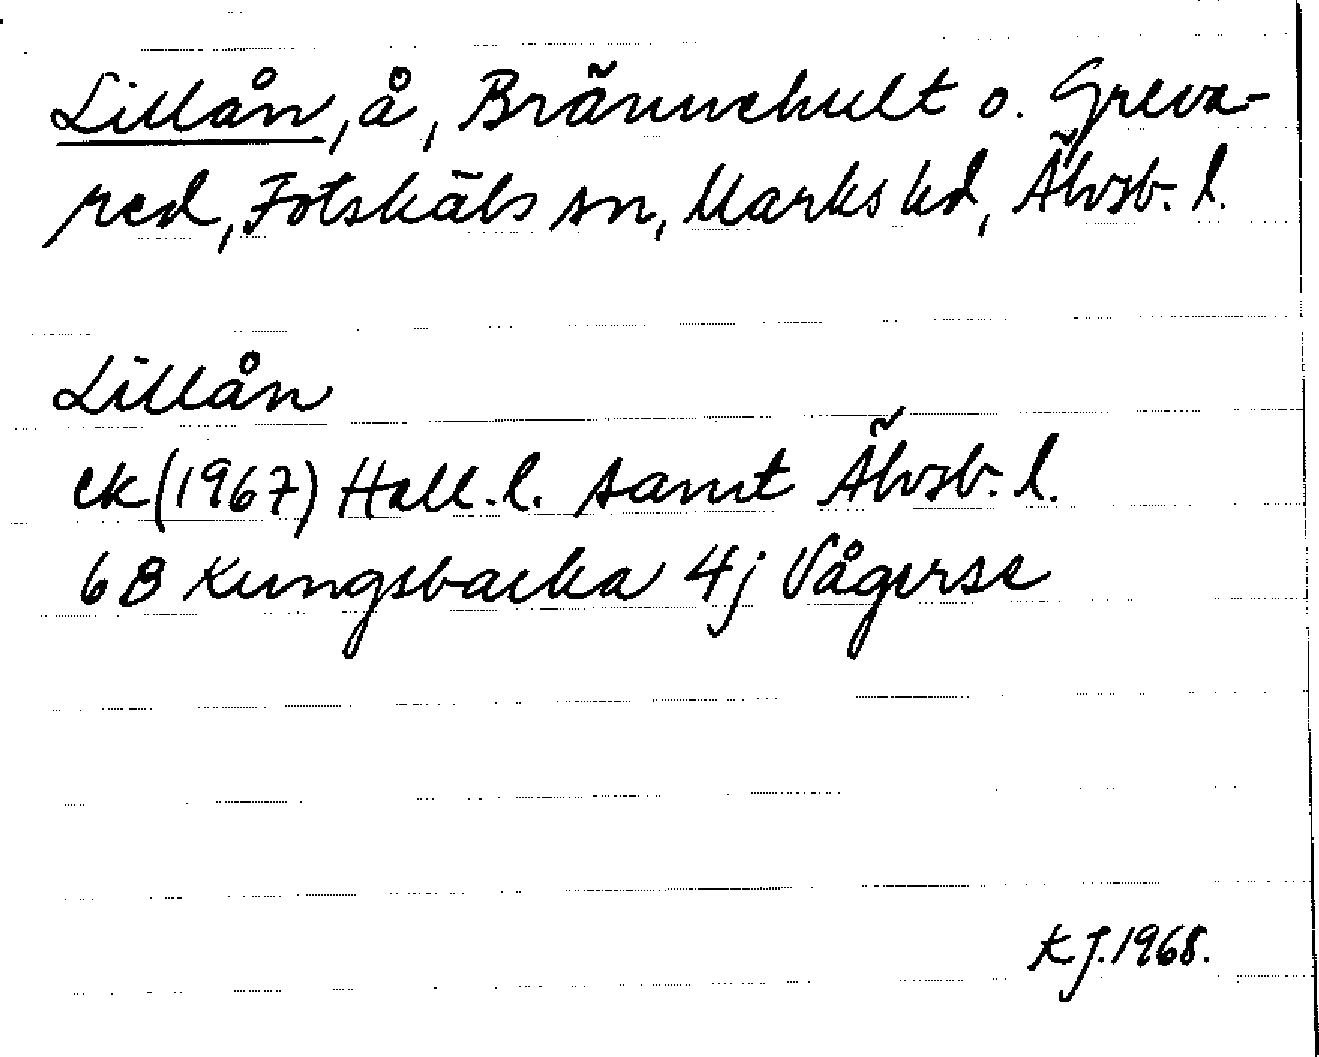 Lillån, å, Brännehult o. Greva-
red, Fotskäls sn, Marks hd, Älvsb. l.
Lillån
ek (1967) Hall. l. samt Älvsb. l.
6B Kungsbacka 4j Vågerse
K.J. 1968.